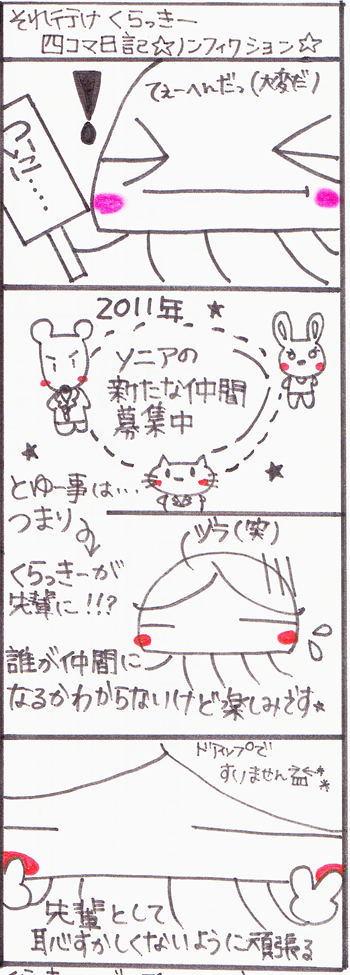 それ行け くらっきー
四コマ日記☆ノンフィクション☆
てぇーへんだっ(大変だ)
!
ついに……
2011年 ★
ソニアの
新たな仲間
募集中
とゆー事は…
つまり
ヅラ(笑)
くらっきーが
先輩に!!?
誰が仲間に
なるかわからないけど楽しみです★
ドアップで
すいません
先輩として
恥ずかしくないように頑張る